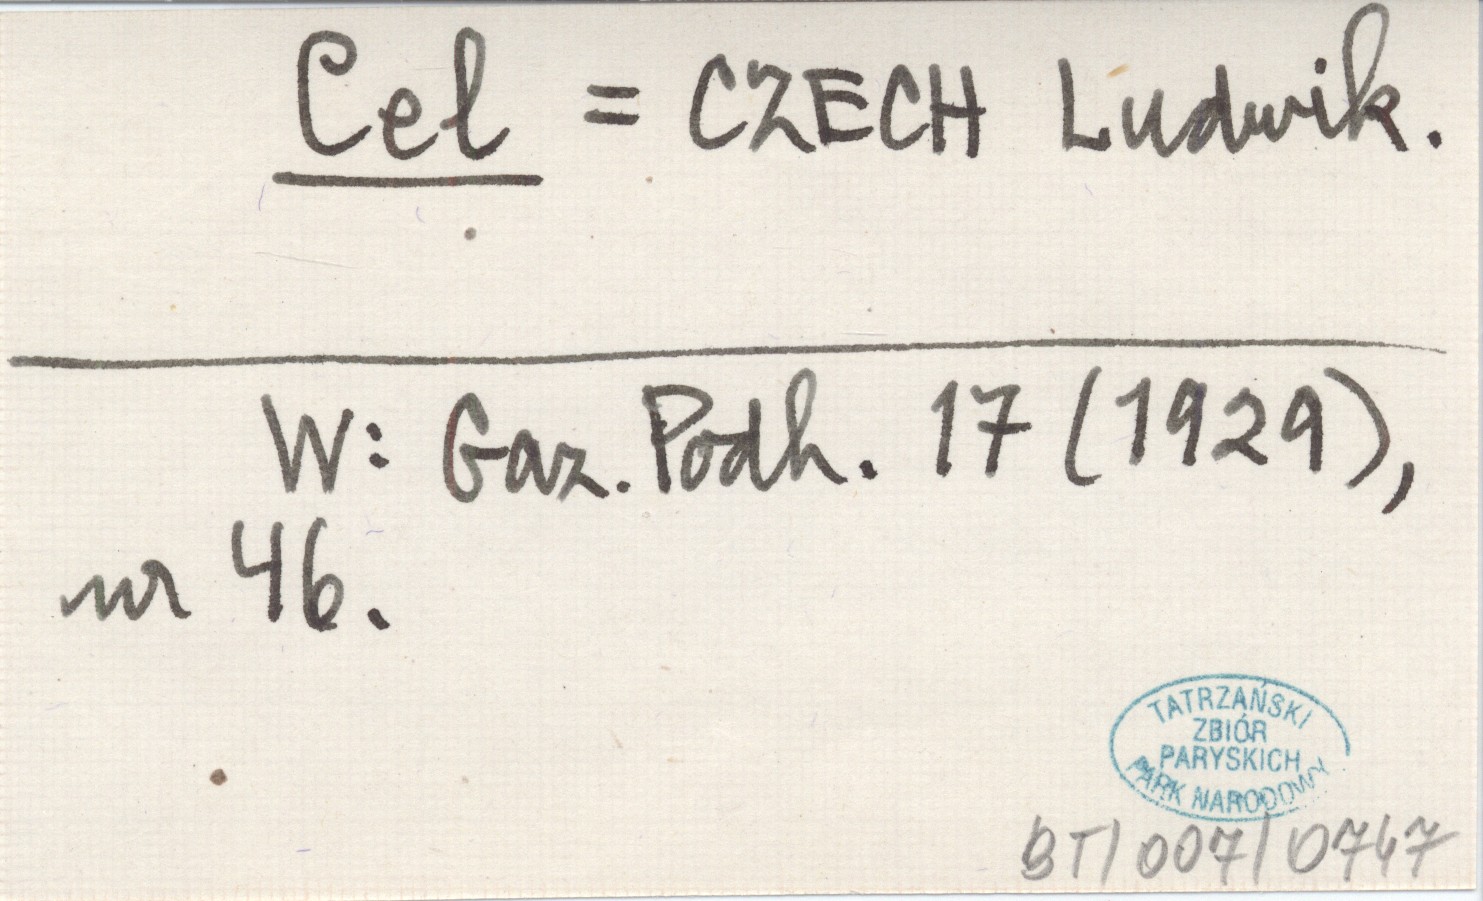 Cel = CZECH Ludwik.
W: Gaz. Podh. 17 (1929),
nr 46.
TATRZAŃSKI
ZBIÓR
PARYSKICH
PARK NARODOWY
BT/007/0747